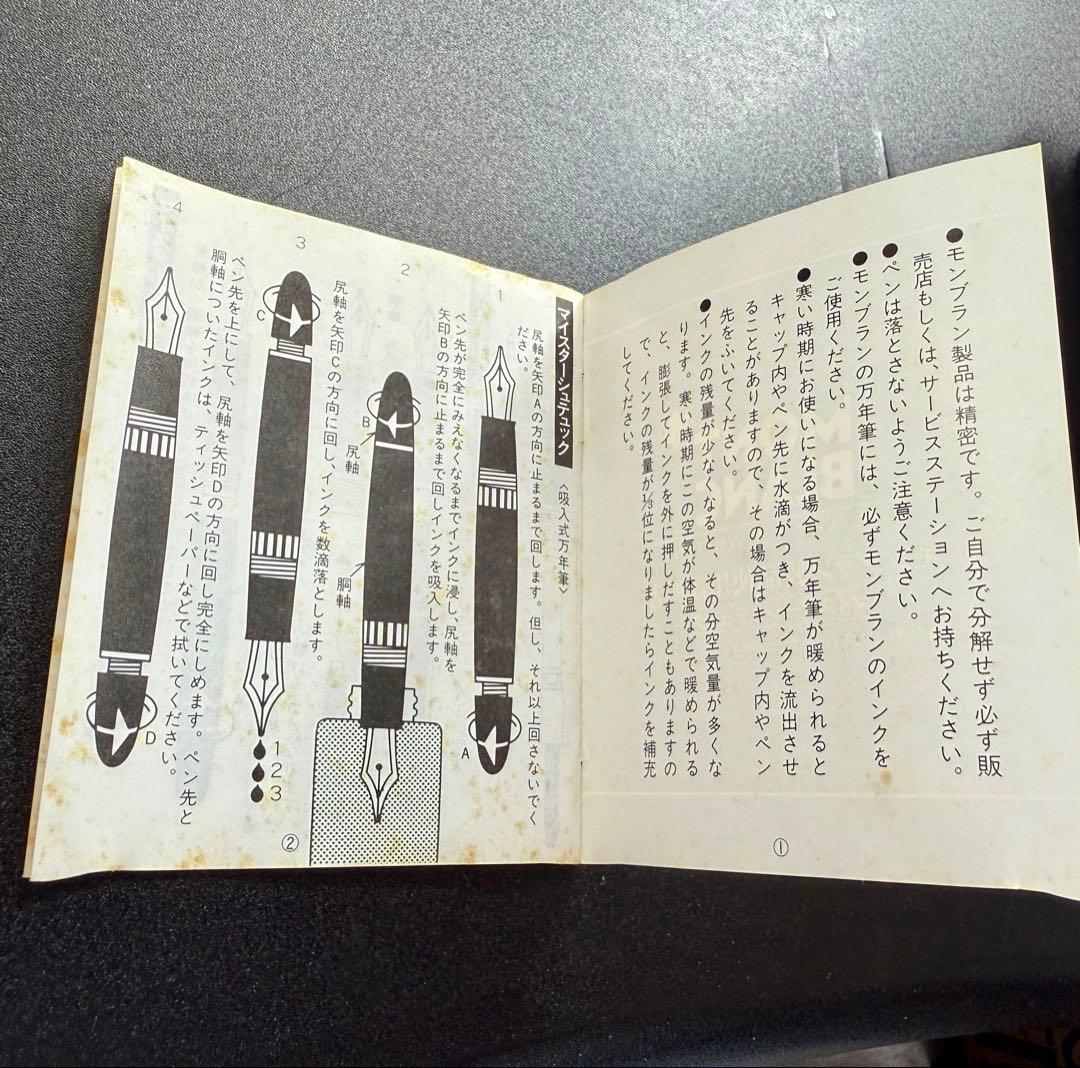 ●モンブラン製品は精密です。ご自分で分解せず必ず販
売店もしくは、サービスステーションへお持ちください。
●ペンは落とさないようご注意ください。
●モンブランの万年筆には、必ずモンブランのインクを
ご使用ください。
●寒い時期にお使いになる場合、万年筆が暖められると
キャップ内やペン先に水滴がつき、インクを流出させ
ることがありますので、その場合はキャップ内やペン
先をふいてください。
●インクの残量が少なくなると、その分空気量が多くな
ります。寒い時期にこの空気が体温などで暖められる
と、膨張してインクを外に押しだすこともありますの
で、インクの残量が⅓位になりましたらインクを補充
してください。
①
マイスターシュテュック〈吸入式万年筆〉
1
尻軸を矢印Aの方向に止まるまで回します。但し、それ以上回さないでく
ださい。
A
2
ペン先が完全にみえなくなるまでインクに浸し、尻軸を
矢印Bの方向に止まるまで回しインクを吸入します。
B
尻軸
胴軸
3
尻軸を矢印Cの方向に回し、インクを数滴落とします。
C
1
2
3
4
ペン先を上にして、尻軸を矢印Dの方向に回し完全にしめます。ペン先と
胴軸についたインクは、ティッシュペーパーなどで拭いてください。
D
②